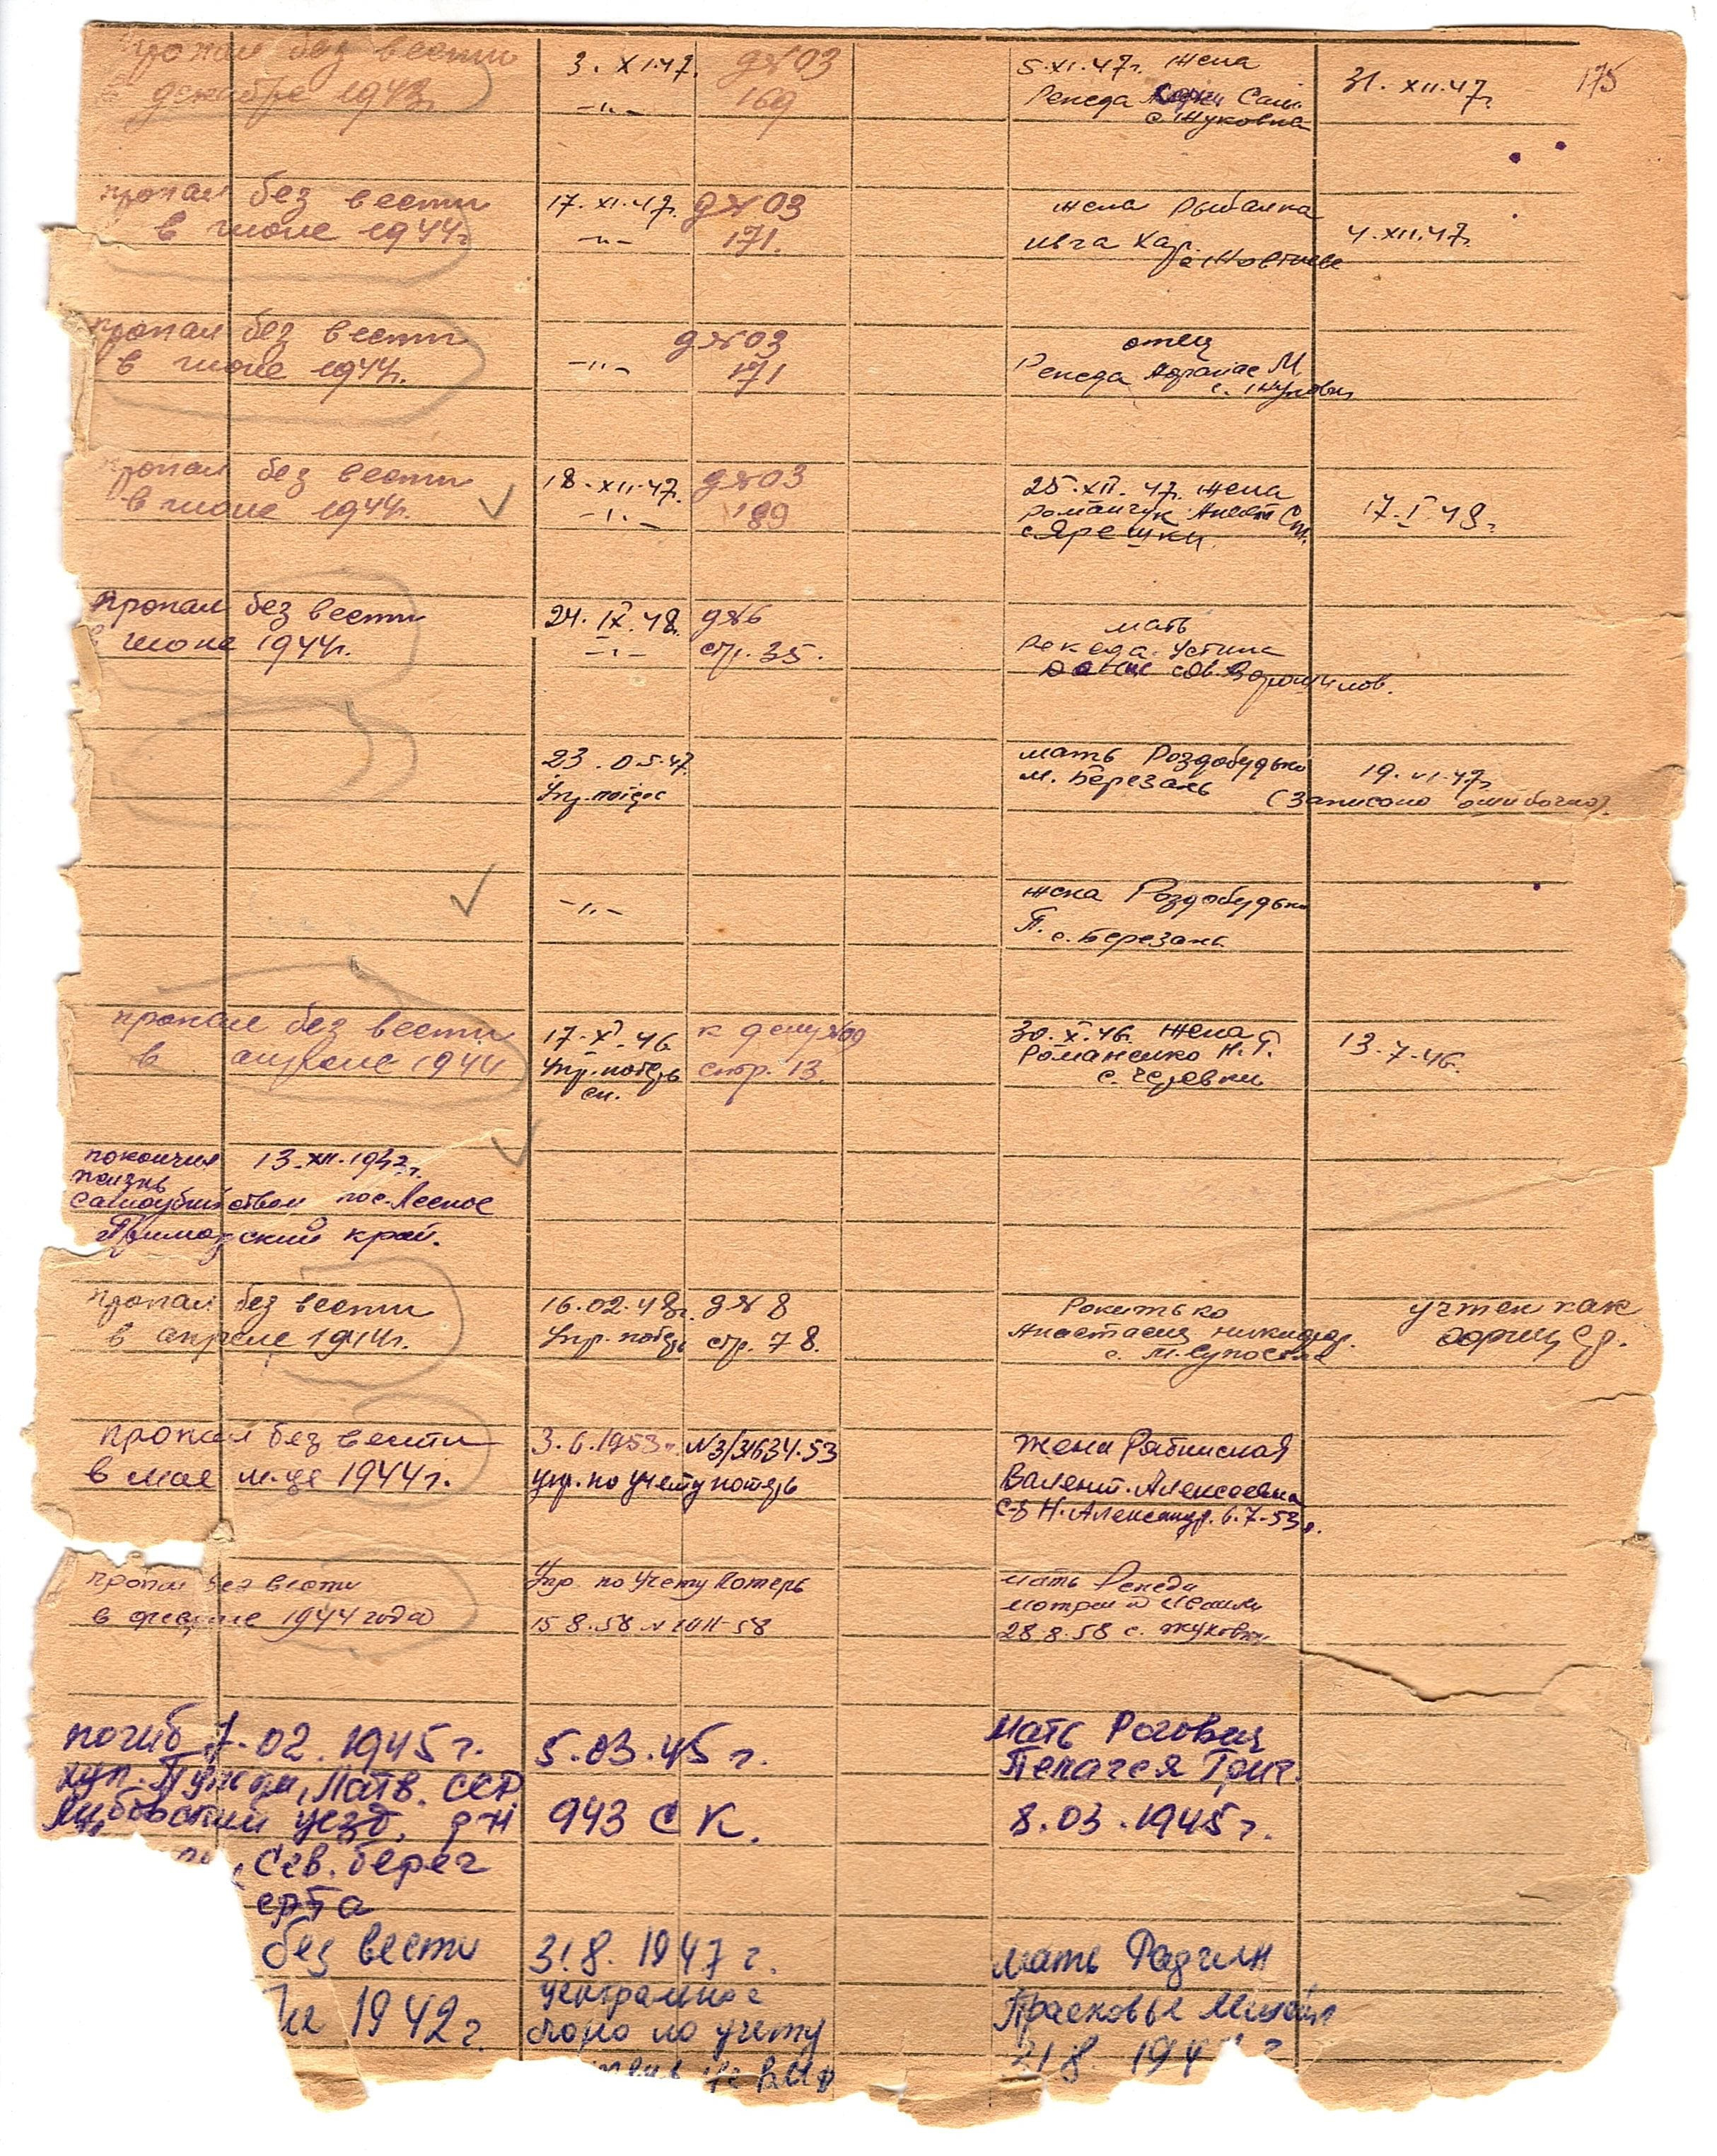 пропал без вести
декабре 1943г.
3. XI.47.
-"-
д№03
169
5.XI.47г. жена
Репеда Сам.
с. Жуковка
31. XII.47г.
175
пропал без вести
в июне 1944г
17. XI.47г.
-"-
д№03
171.
жена Рыбалка
Ивга Хар.
4.XII.47г.
пропал без вести
в июне 1944г.
-"-
д№03
171
отец
Репеда М
с. Жуковка
пропал без вести
в июне 1944г.
18.XII.47г.
-"-
д№03
189
25.XII.47г. жена
Романчук
с Ярешки
17.I.48г.
Пропал без вести
июне 1944г.
24.IX.48г.
-"-
д№6
стр. 35.
мать
Репеда Устина
23.05.47.
Упр. потерь
мать Роздобудько
м. Березань
19.VI.47г
(записано ошибочно).
-"-
жена Роздобудько
П. с. Березань
пропал без вести
в апреле 1944
17.X.46
Упр. потерь
сп.
к делу №09
стр. 13.
30.X.46г. жена
Романенко Н.Г.
с. Черевки
13.7.46г.
покончил 13.XII.1942г.
жизнь
самоубийством пос. Лесное
Приморский край.
пропал без вести
в апреле 1944г.
16.02.48г. д№8
Упр. потерь стр. 78.
Рокитько
Анастасия Никифор.
с. М. Супоевка
учтен как
пропал без вести
в мае м-це 1944г.
3.6.1953г. №3/31634.53
упр. по учету потерь
Жена Рябинская
Валент. Алексеевна
с-з Н. Александр. 6.7-53г.
пропал без вести
в феврале 1944 года
Упр. по учету потерь
15.8.58 №
мать Репеда
28.8.58 с. Жуковка
погиб 7.02.1945г.
хут. Латв. ССР
Либавский уезд,
Сев. берег
5.03.45 г.
943 СК.
Мать Роговец
Пелагея Григ.
8.03.1945г.
без вести
1942г.
31.8.1947г.
центральное
бюро по учету
ВМФ
мать Радчин
Прасковья